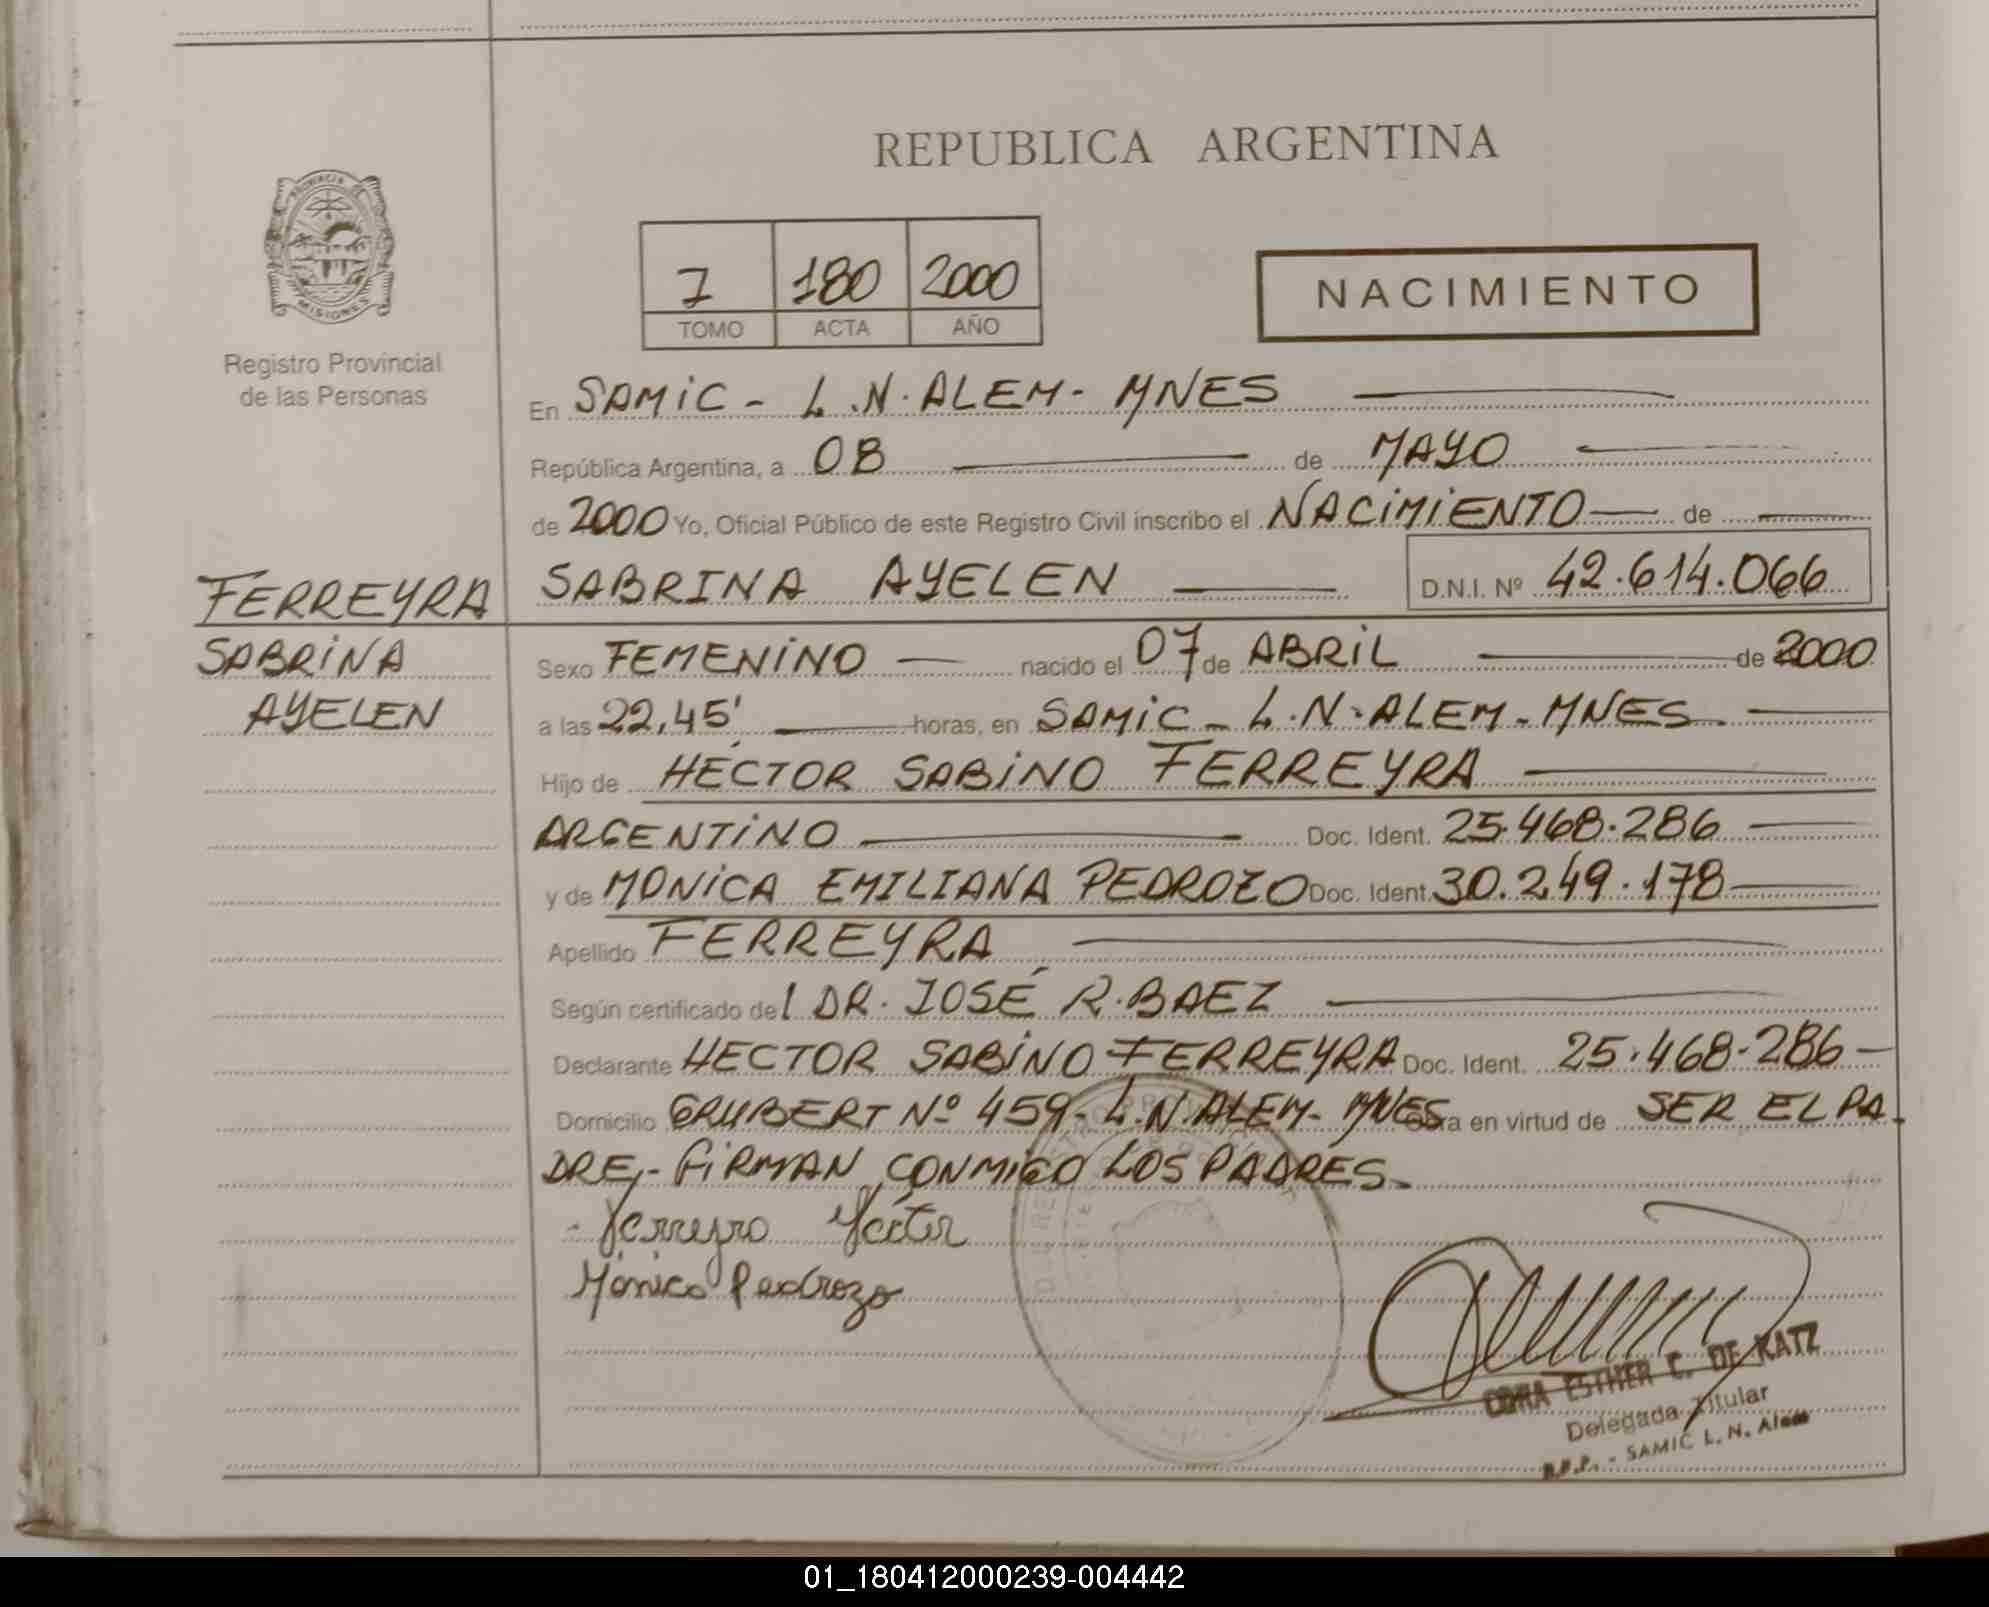 REPUBLICA ARGENTINA
PROVINCIA DE
MISIONES
Registro Provincial
de las Personas
7 180 2000
TOMO ACTA AÑO
NACIMIENTO
En SAMIC - L.N. ALEM - MNES
República Argentina, a 08 de MAYO
de 2000 Yo, Oficial Público de este Registro Civil inscribo el NACIMIENTO de
FERREYRA
SABRINA
AYELEN
SABRINA AYELEN D.N.I. Nº 42.614.066
Sexo FEMENINO nacido el 07 de ABRIL de 2000
a las 22,45' horas, en SAMIC - L.N. ALEM - MNES
Hijo de HÉCTOR SABINO FERREYRA
ARGENTINO Doc. Ident. 25.468.286
y de MONICA EMILIANA PEDROZO Doc. Ident. 30.249.178
Apellido FERREYRA
Según certificado del DR. JOSÉ R. BAEZ
Declarante HECTOR SABINO FERREYRA Doc. Ident. 25.468.286
Domicilio GRUBERT Nº 459 - L.N. ALEM - MNES Obra en virtud de SER EL PA-
DRE - FIRMAN CONMIGO LOS PADRES
Ferreyra Héctor
Mónica Pedrozo
ESTHER C. DE KATZ
Delegada Titular
R.P.P. - SAMIC L. N. Alem
01_180412000239-004442